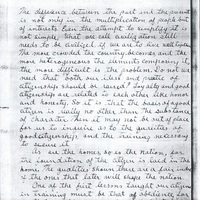 The difference between the past and the present
is not only in the multiplication of people but
of interests. Even the attempt to simplify it is
not simple. There are such qualifications still
needs to be drilled if we are to live
The more crowded the country becomes and the
more heterogeneous the elements composing it,
the more difficult is the problem. So we
need that both our ideas and practice of
citizenship should be raised. Loyalty and good
citizenship are related to each other like honor
and honesty. So it is that the basis of good
citizen is really no other than the substance
of character. So it may not be out of place
for us to enquire as to the qualities of
good citizenship, and the training necessary
to ensure it.
As is the home, so is the nation, for
the foundation of the citizen is laid in the
home. The qualities shown there are a fair index
to the ones that later will shape the nation.
One of the first lessons taught our citizen
in training must be that of obedience, and